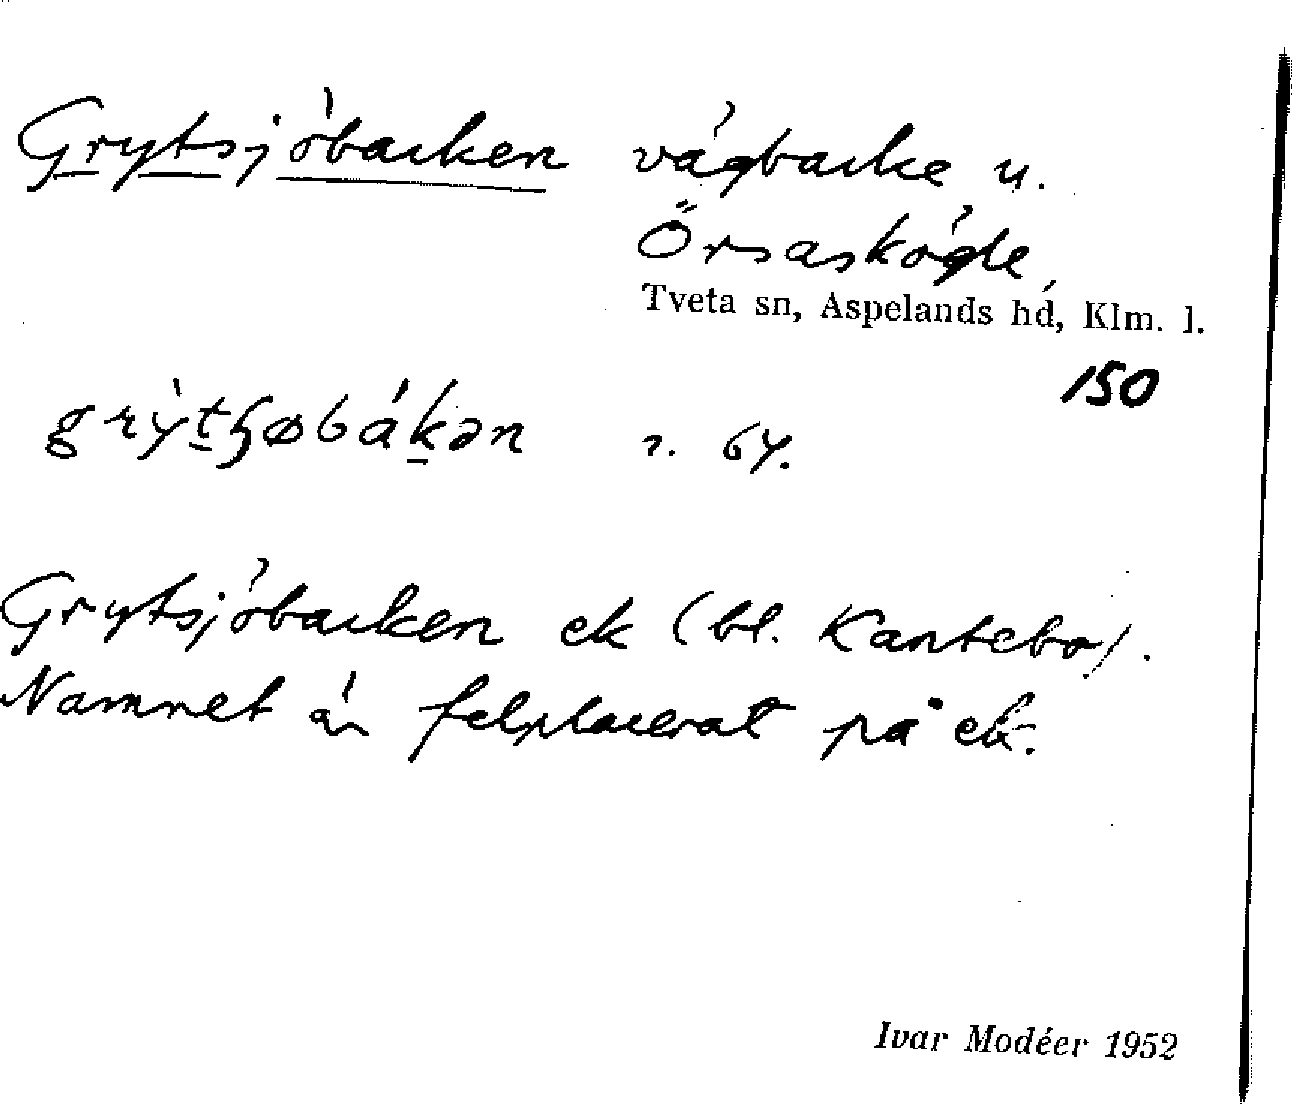 Grytsjöbacken vägbacke u.
Örsaskögle,
Tveta sn, Aspelands hd, Klm. l.
150
grỳtʃøbákən r. 64.
Grytsjöbacken ek (bl. Kantebo).
Namnet är felplacerat på ek.
Ivar Modéer 1952